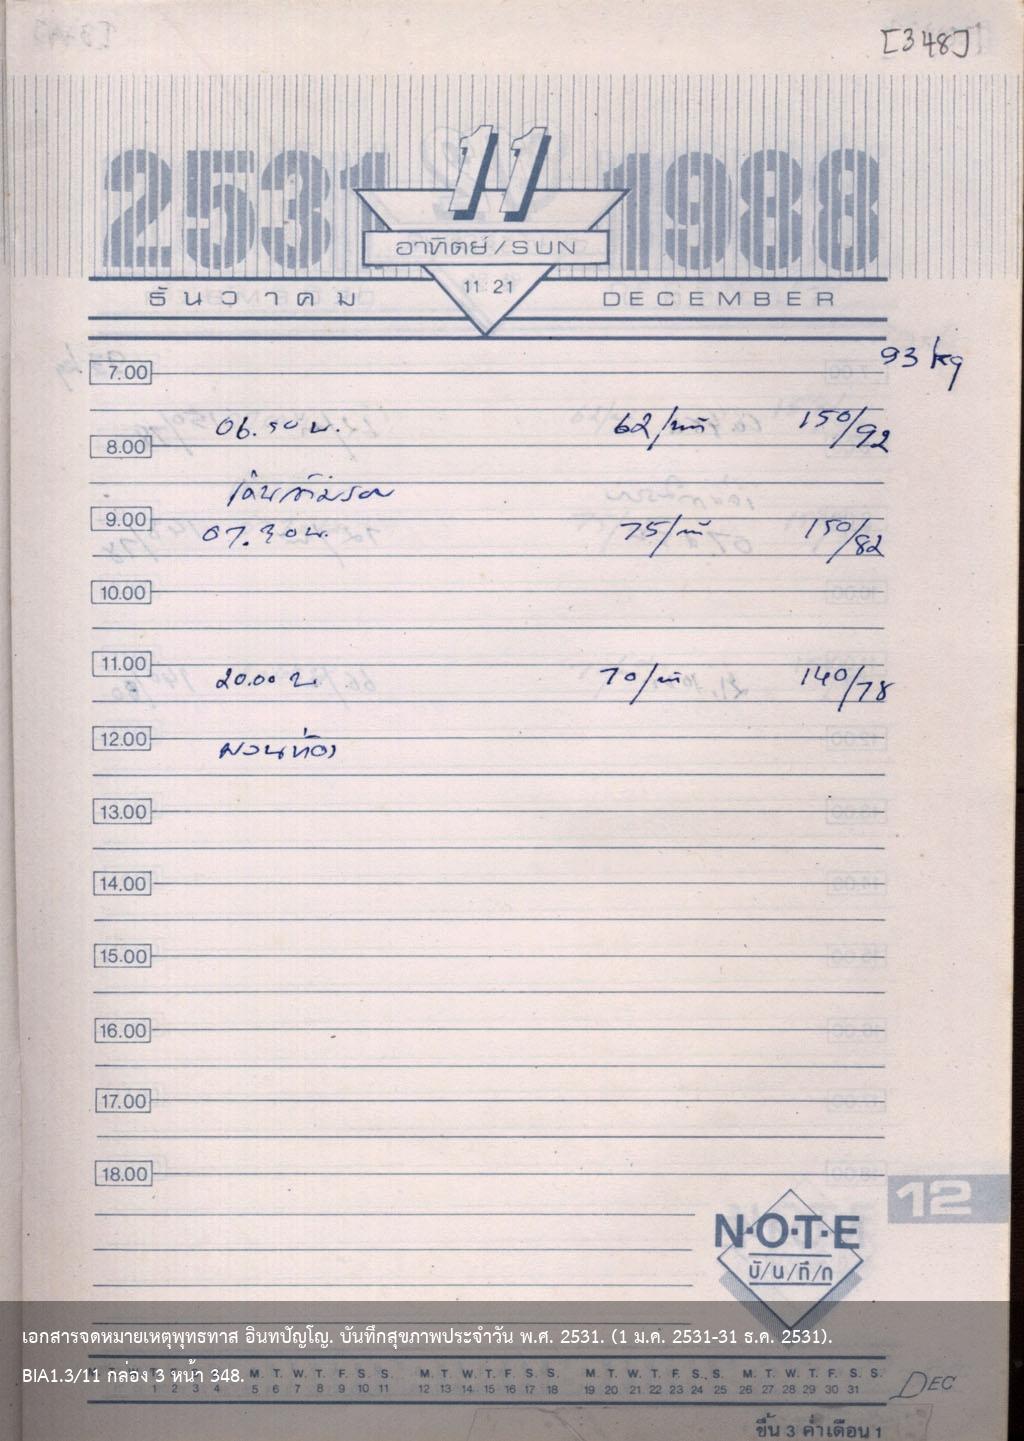 [348]
2531 11 1988
อาทิตย์/SUN
11 21
ธันวาคม DECEMBER
93 kg
7.00
06. น. 62/นาที 150/92
8.00
เดิน รอบ
9.00
07.30 น. 75/นาที 150/82
10.00
11.00
20.00 น. 70/นาที 140/78
12.00
สวนท้อง
13.00
14.00
15.00
16.00
17.00
18.00
12
N·O·T·E
บั/น/ทึ/ก
เอกสารจดหมายเหตุพุทธทาส อินทปัญโญ. บันทึกสุขภาพประจำวัน พ.ศ. 2531. (1 ม.ค. 2531-31 ธ.ค. 2531).
BIA1.3/11 กล่อง 3 หน้า 348.
M. T. W. T. F. S. S. M. T. W. T. F. S. S. M. T. W. T. F. S. S. M. T. W. T. F. S. S.
1 2 3 4 5 6 7 8 9 10 11 12 13 14 15 16 17 18 19 20 21 22 23 24 25 26 27 28 29 30 31
DEC
ขึ้น 3 ค่ำเดือน 1